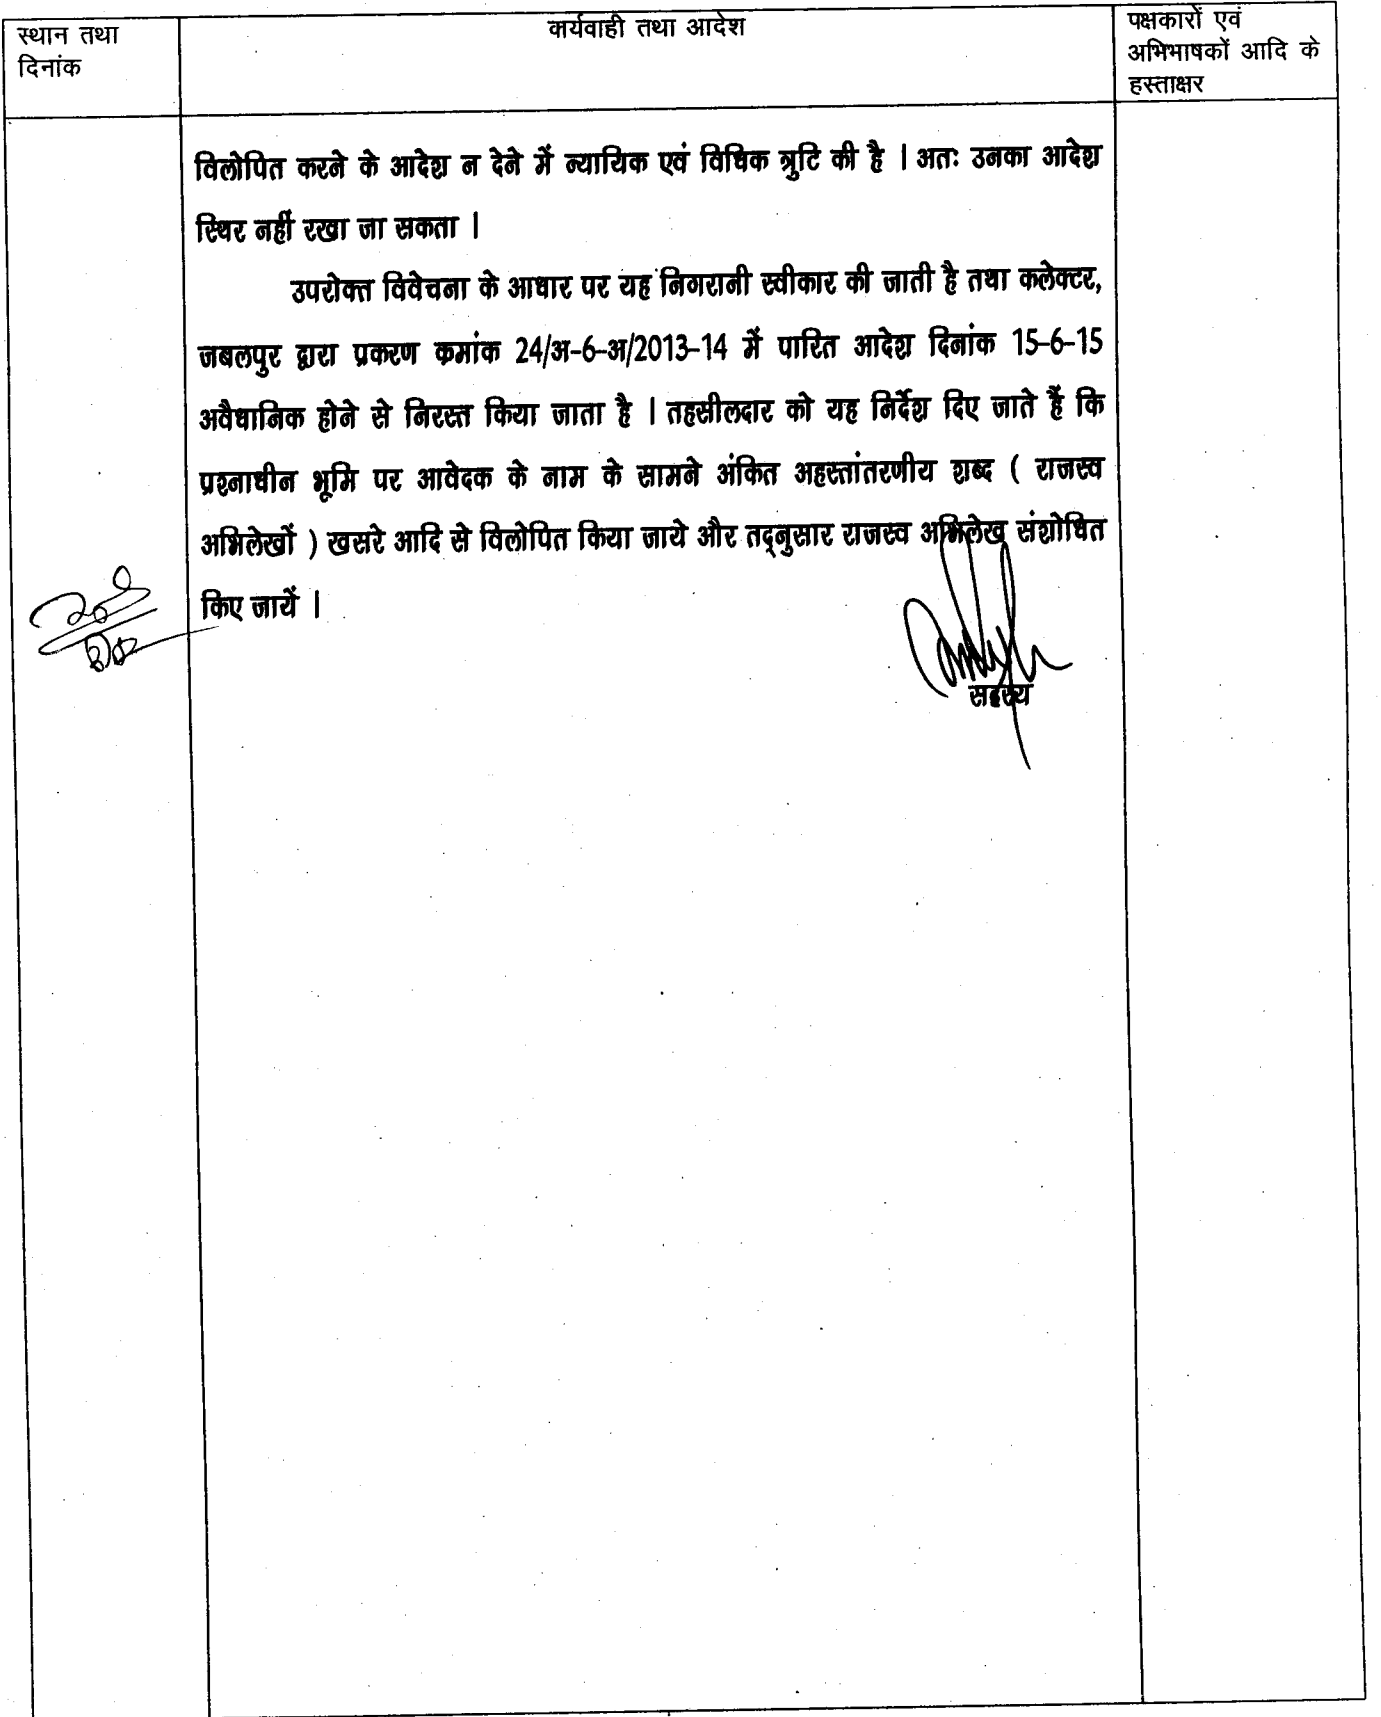 स्थान तथा
दिनांक
कार्यवाही तथा आदेश
पक्षकारों एवं
अभिभाषकों आदि के
हस्ताक्षर
विलोपित करने के आदेश न देने में न्यायिक एवं विधिक त्रुटि की है । अतः उनका आदेश
स्थिर नहीं रखा जा सकता ।
उपरोक्त विवेचना के आधार पर यह निगरानी स्वीकार की जाती है तथा कलेक्टर,
जबलपुर द्वारा प्रकरण कमांक 24/अ-6-अ/2013-14 में पारित आदेश दिनांक 15-6-15
अवैधानिक होने से निरस्त किया जाता है । तहसीलदार को यह निर्देश दिए जाते हैं कि
प्रश्नाधीन भूमि पर आवेदक के नाम के सामने अंकित अहस्तांतरणीय शब्द ( राजस्व
अभिलेखों ) खसरे आदि से विलोपित किया जाये और तद्नुसार राजस्व अभिलेख संशोधित
किए जायें ।
सदस्य